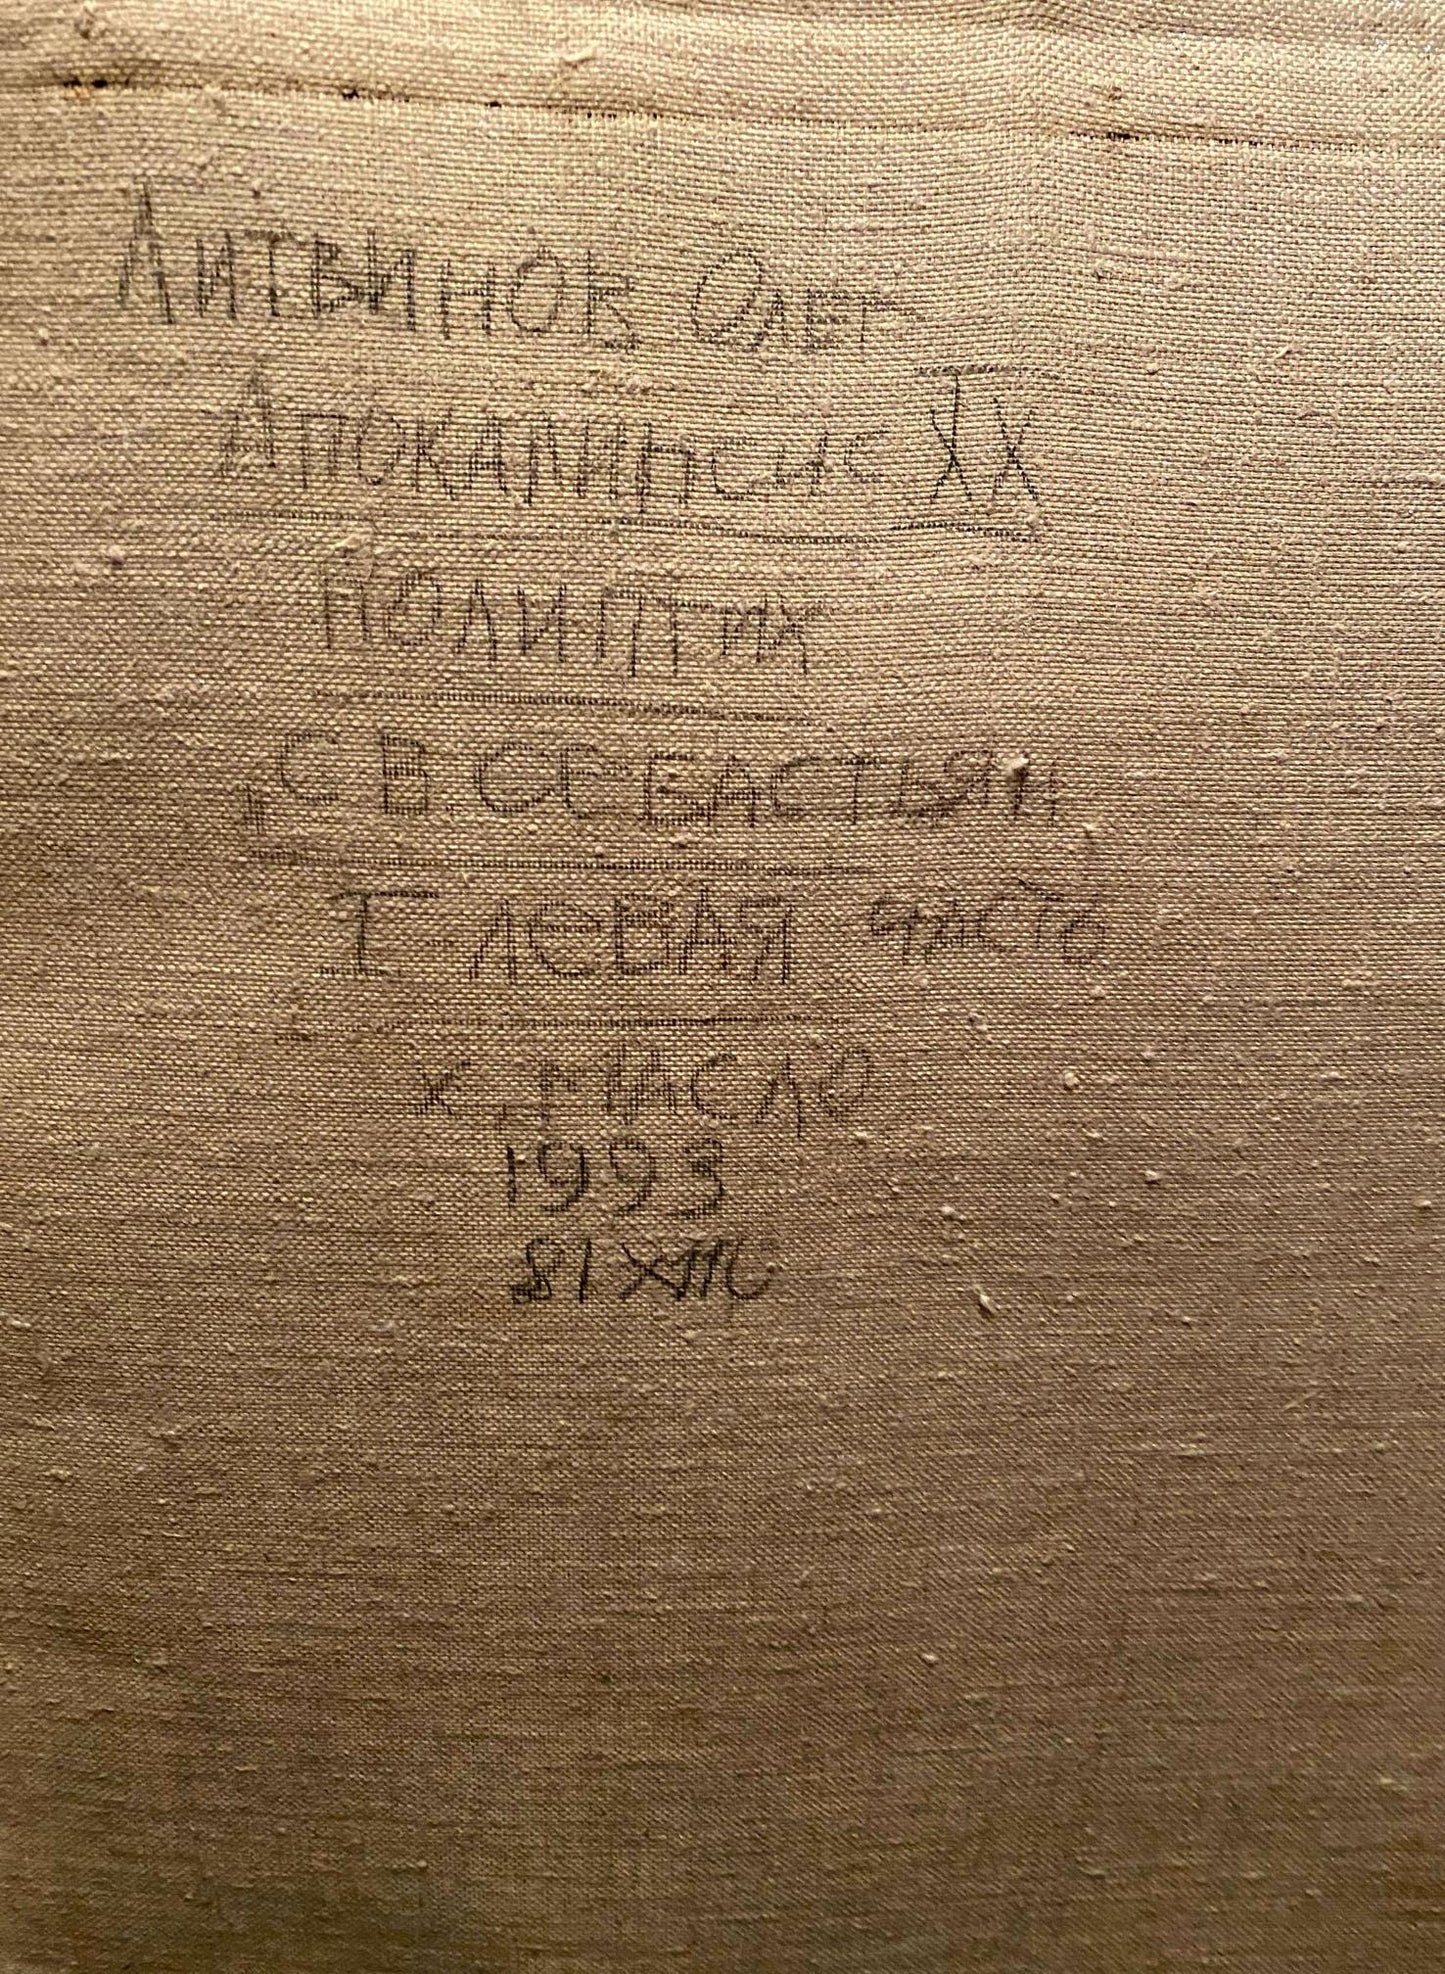 Литвинов Олег
Апокалипсис XX
полиптих
„Св. Себастьян
I левая часть
х, масло
1993